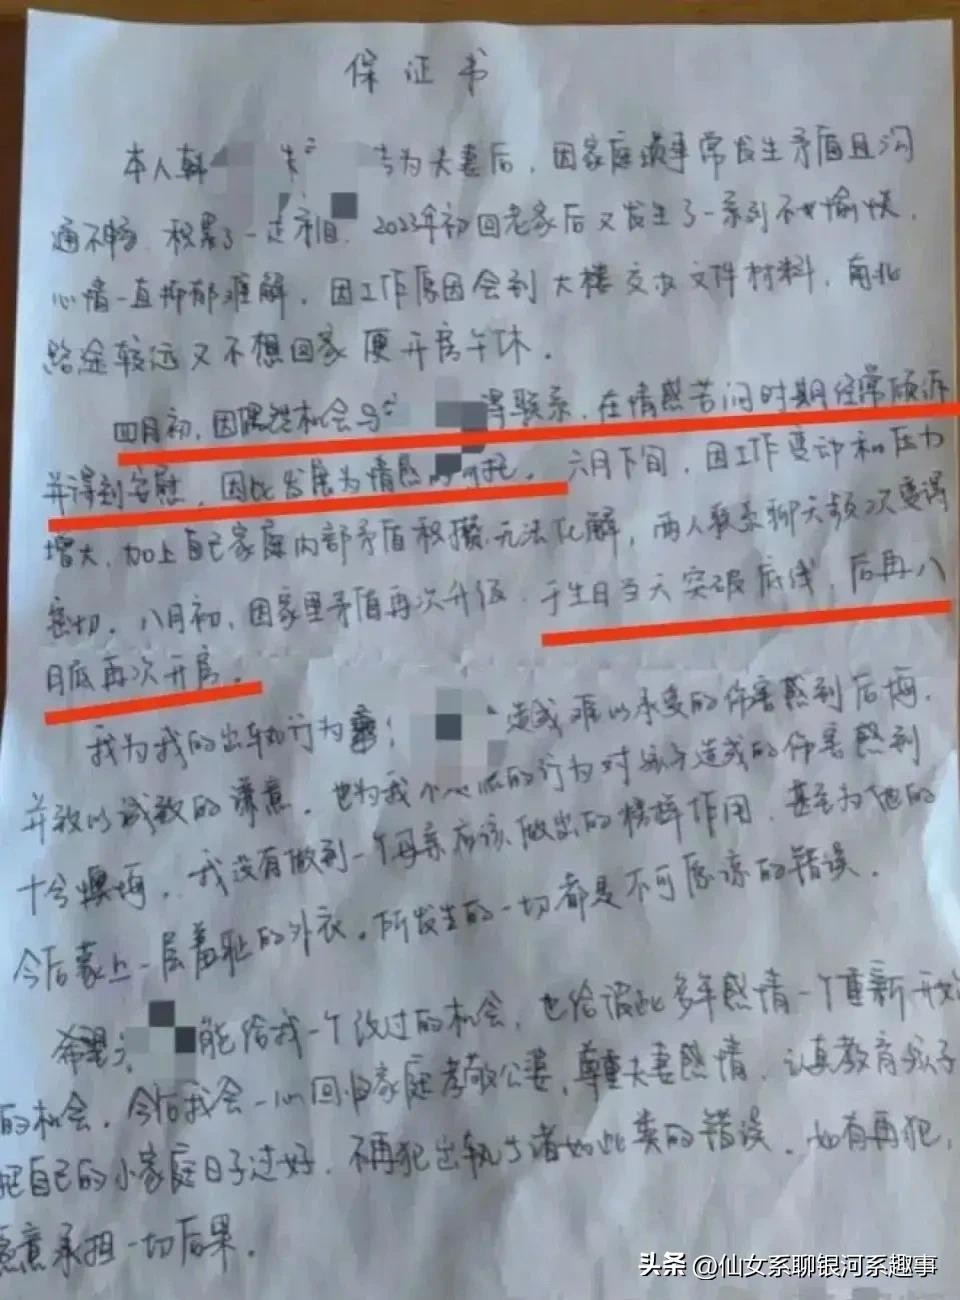 保证书
本人韩 与 为夫妻后，因家庭琐事常发生矛盾且沟
通不畅，积累了一定 ，2023年初回老家后又发生了一系列不愉快，
心情一直抑郁难解，因工作原因会到大楼交接文件材料，南北
路途较远又不想回家便开房午休。
四月初，因偶然机会与 得联系，在情感苦闷时期经常倾诉
并得到安慰，因此发展为情感的 托。六月下旬，因工作变动和压力
增大，加上自己家庭内部矛盾积攒无法化解，两人联系聊天频次变得
密切，八月初，因家里矛盾再次升级，于生日当天突破底线，后再八
月底再次开房。
我为我的出轨行为 造成难以承受的伤害感到后悔，
并致以诚致的谦意，也为我 的行为对孩子造成的伤害感到
十分懊悔，我没有做到一个母亲应该做出的榜样作用，甚至为他的
今后蒙上一层羞耻的外衣，所发生的一切都是不可原谅的错误。
希望 能给我一个改过的机会，也给彼此多年感情一个重新开始
的机会，今后我会一心回归家庭孝敬公婆，尊重夫妻感情，认真教育孩子
把自己的小家庭日子过好，不再犯出轨 诸如此类的错误，如有再犯，
愿意承担一切后果。
头条 @仙女系聊银河系趣事